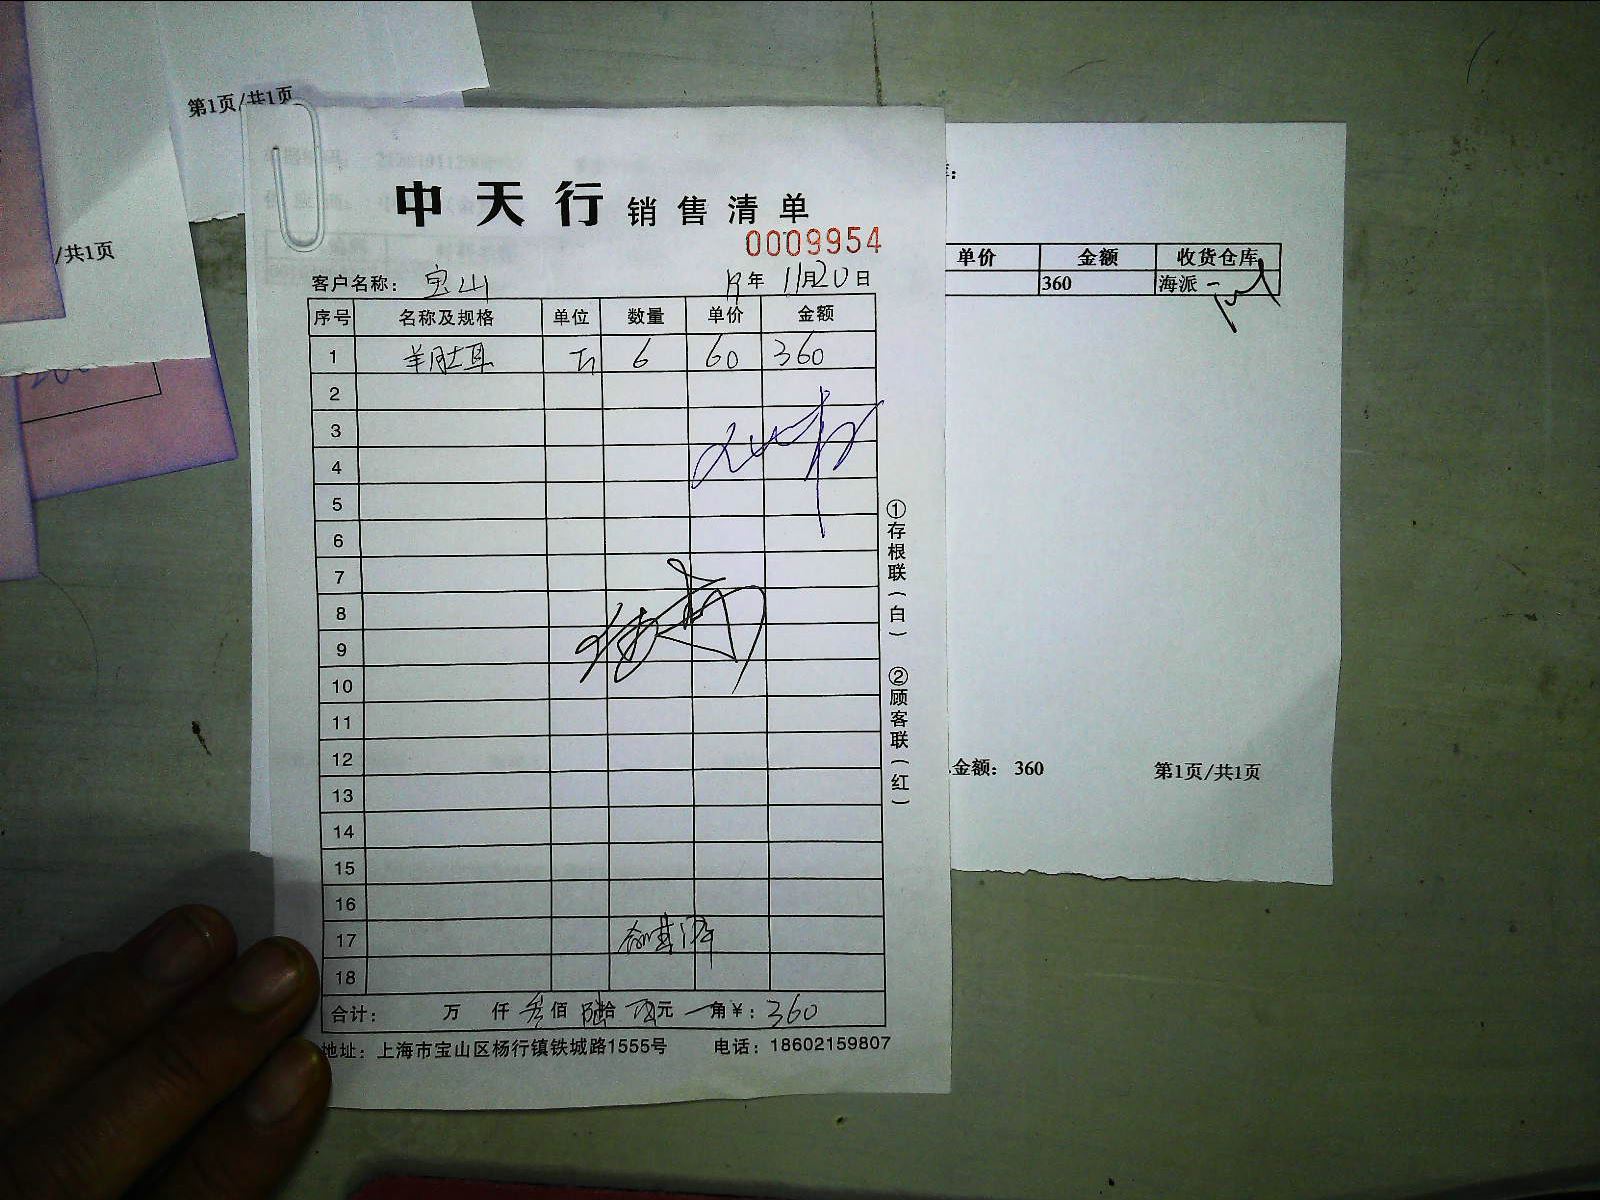 第1页/共1页
/共1页
中天行 销售清单
0009954
客户名称： 宝山 19年 11月20日
序号 名称及规格 单位 数量 单价 金额
1 羊肚耳 斤 6 60 360
2
3
4
5
6
7
8
9
10
11
12
13
14
15
16
17
18
合计： 万 仟 叁佰 陆拾 元 角￥：360
地址：上海市宝山区杨行镇铁城路1555号 电话：18602159807
①存根联（白） ②顾客联（红）
单价 金额 收货仓库
360 海派
金额： 360 第1页/共1页